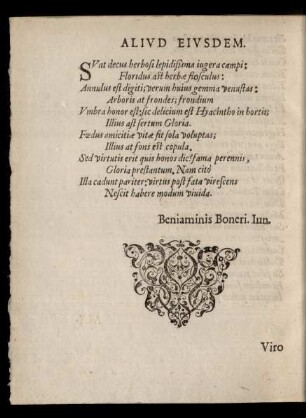 ALIVD EIVSDEM.
SVnt decus herbosi lepidissima iugera campi:
Floridus ast herbæ flosculus:
Annulus est digiti; verum huius gemma venustas:
Arboris at frondes; frondium
Vmbra honor est: sic delicium est Hyacintho in hortis;
Illius ast sertum Gloria.
Fœdus amicitiæ vitæ sit sola voluptas;
Illius at fons est copula.
Sed virtutis erit quis honos dic? fama perennis,
Gloria prestantum. Nam citò
Illa cadunt pariter; virtus post fata virescens
Nescit habere modum viuida.
Beniaminis Boneri. Iun.
Viro